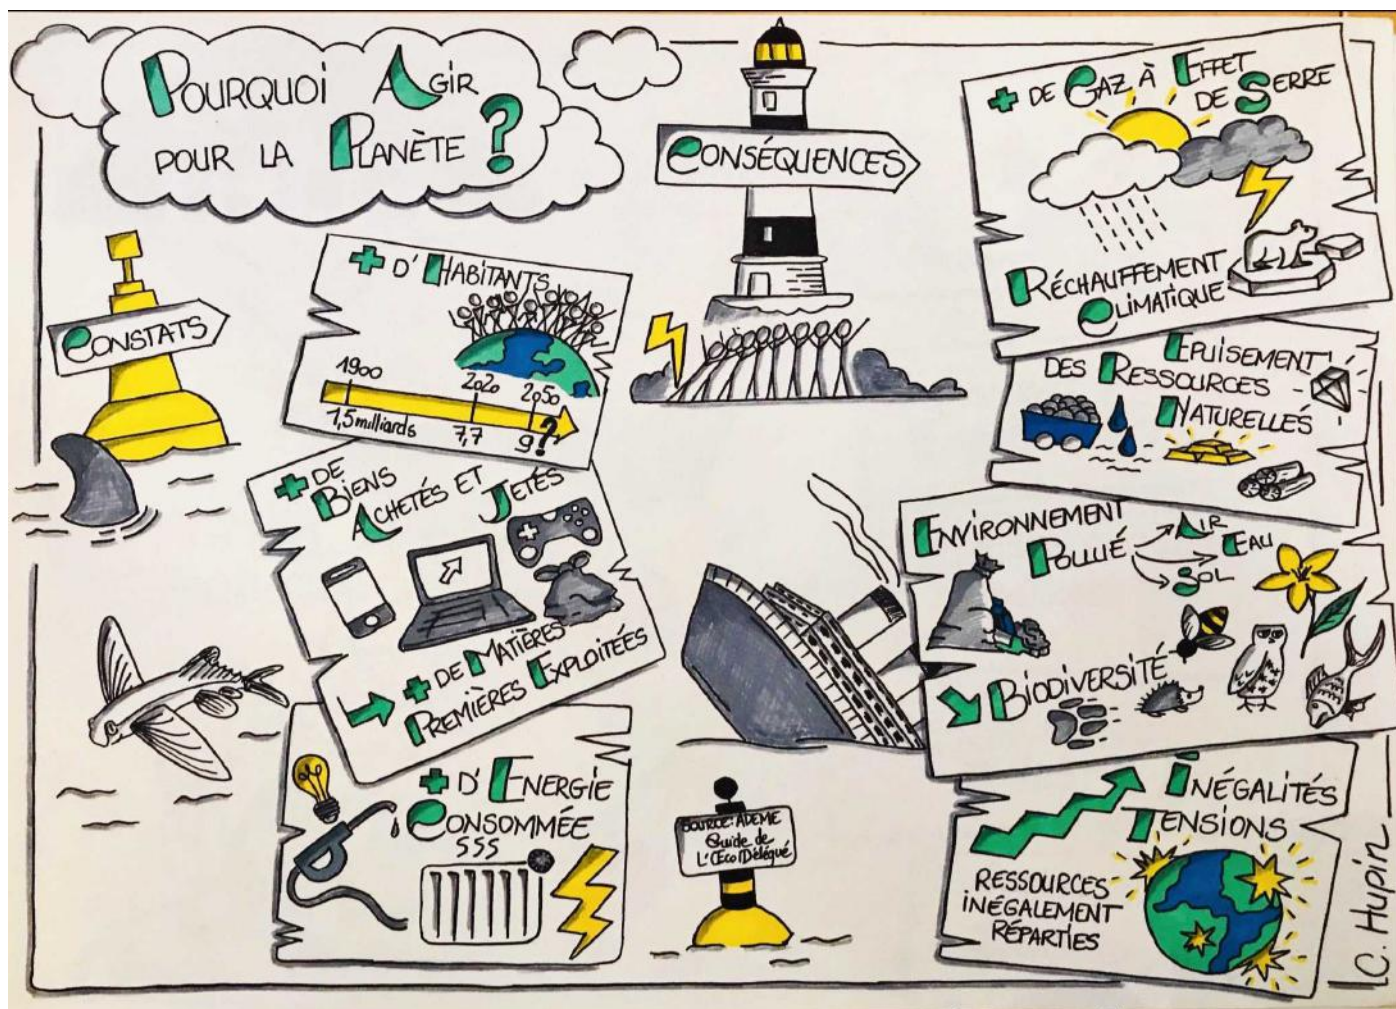 POURQUOI AGIR
POUR LA PLANÈTE ?
CONSTATS
+ D'HABITANTS
1900
2020
2050
1,5 milliards
7,7
9 ?
+ DE
BIENS
ACHETÉS ET JETÉS
→ + DE MATIÈRES
PREMIÈRES EXPLOITÉES
+ D'ENERGIE
CONSOMMÉE
CONSÉQUENCES
SOURCE: ADEME
Guide de
L'Éco/Délégué
+ DE GAZ À EFFET
DE SERRE
RÉCHAUFFEMENT
CLIMATIQUE
EPUISEMENT
DES RESSOURCES
NATURELLES
ENVIRONNEMENT
POLLUÉ
AIR
EAU
SOL
BIODIVERSITÉ
INÉGALITÉS
TENSIONS
RESSOURCES
INÉGALEMENT
RÉPARTIES
C. Hupin